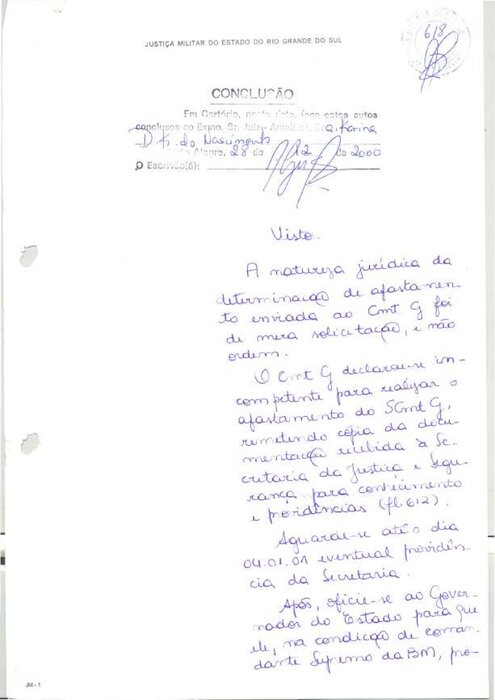 JUSTIÇA MILITAR DO ESTADO DO RIO GRANDE DO SUL
618
CONCLUSÃO
Em Cartório, nesta data, faço estes autos
conclusos ao Exmo. Sr. Juiz Auditor, Dra. Karina
D. P. do Nascimento
Alegre, 28 de 12 de 2000
O Escrivão(ã):
Visto.
A natureza jurídica da
determinação de afastamen-
to enviada ao Cmt G foi
de mera solicitação, e não
ordem.
O Cmt G declarou-se in-
competente para realizar o
afastamento do SCmt G,
remetendo cópia da docu-
mentação recebida à Se-
cretaria da Justiça e Segu-
rança para conhecimento
e providências (fl 612).
Aguarde-se até o dia
04.01.01 eventual providên-
cia da Secretaria.
Após, oficie-se ao Gover-
nador do Estado para que
ele, na condição de coman-
dante Supremo da BM, pro-
JM - 1